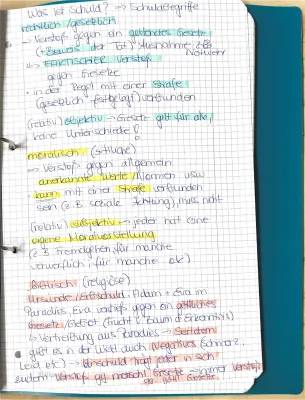 Was ist Schuld? → Schuldbegriffe
rechtlich/gesetzlich
→ Verstoß gegen ein geltendes Gesetz
(+Beweis der Tat), Ausnahme: z.B. Notwehr
↳ FAKTISCHER Verstoß
gegen Gesetze
• in der Regel mit einer Strafe
(gesetzlich festgelegt) verbunden
(relativ) objektiv → Gesetz gilt für alle,
keine Unterschiede!
moralisch (sittliche)
→ Verstoß gegen allgemein
anerkannte Werte/Normen usw
kann mit einer Strafe verbunden
sein (z.B soziale Ächtung), muss nicht
(relativ) subjektiv → jeder hat eine
eigene Moralvorstellung
(z.B Fremdgehen, für manche
verwerflich, für manche ok)
Biblisch (religiöse)
Ursünde/Erbschuld: Adam + Eva im
Paradies, Eva verstieß gegen ein göttliches
Gesetz/Gebot (Frucht v. Baum d. Erkenntnis)
↳ Vertreibung aus Paradies → Seitdem
gibt es in der Welt auch Negatives (Schmerz,
Leid etc) → Urschuld trägt jeder in sich
Verstoß gg. menschl. Gesetz → immer Verstoß
gg. göttl. Gesetz